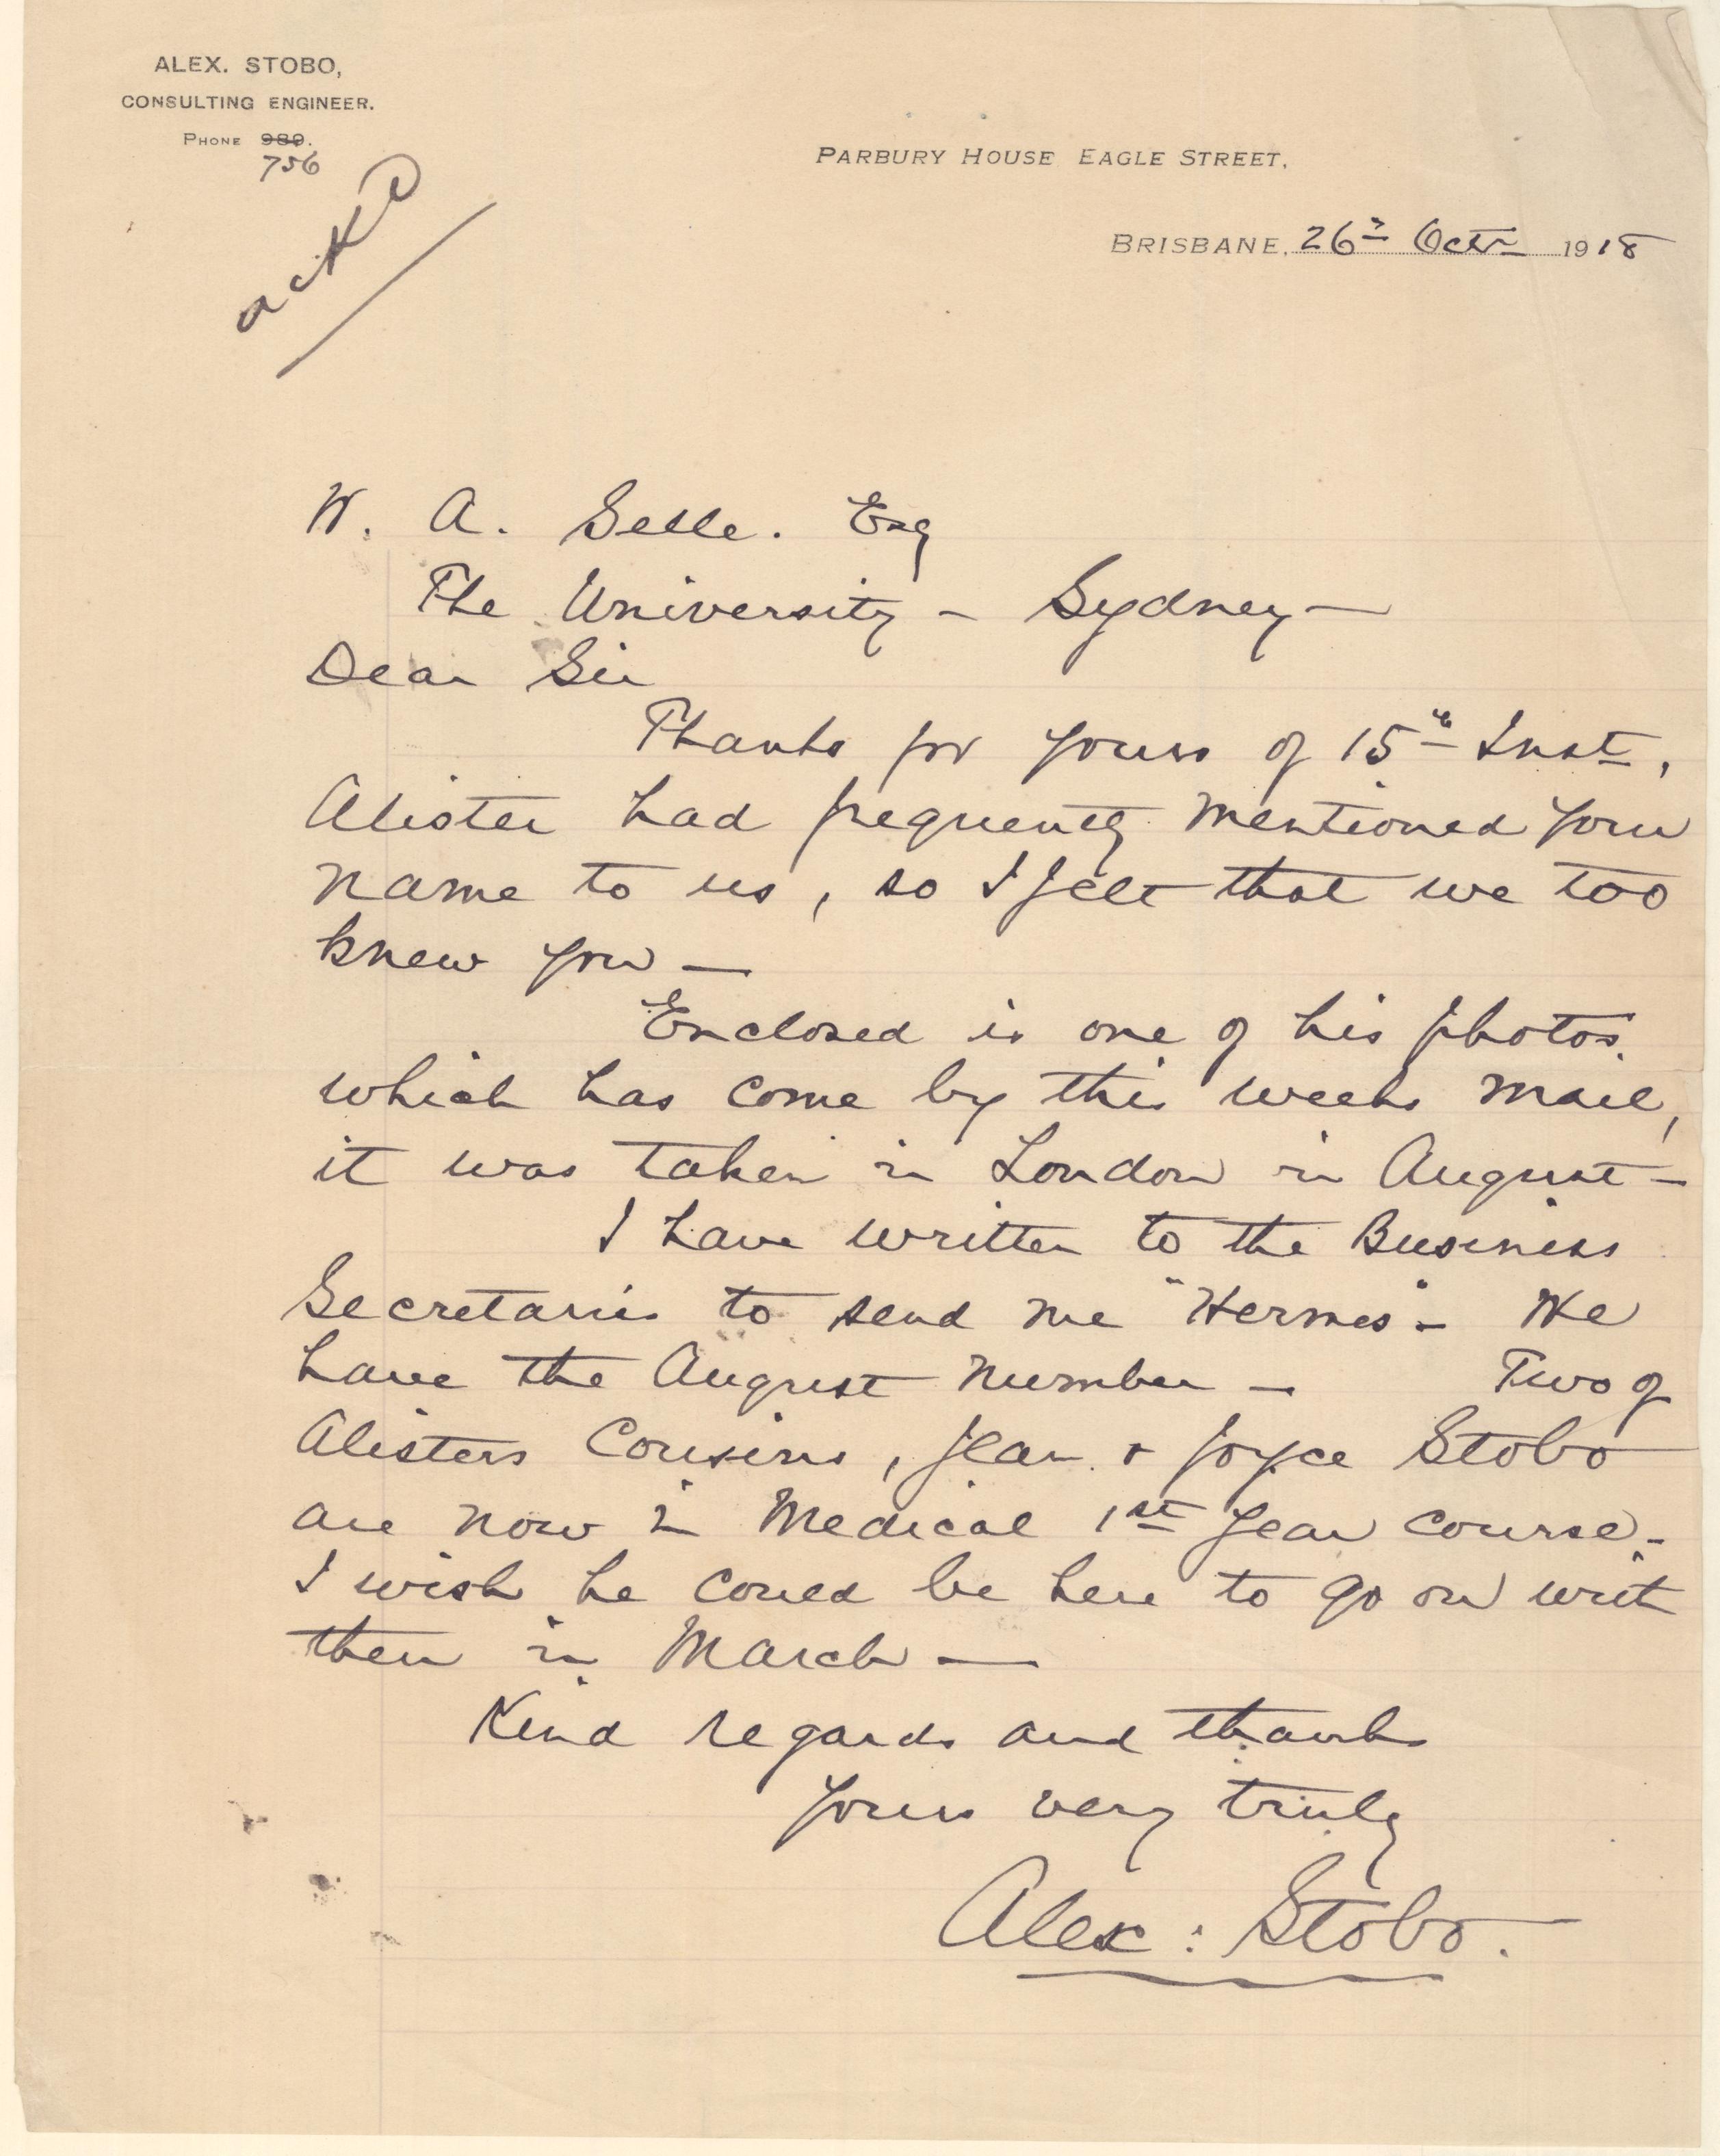 ALEX. STOBO,
CONSULTING ENGINEER.
PHONE 989.
756
ackd
PARBURY HOUSE EAGLE STREET,
BRISBANE, 26th Octr 1918
W. A. Selle. Esq
The University - Sydney -
Dear Sir
Thanks for yours of 15th Inst,
Alister had frequently mentioned your
name to us, so I felt that we too
knew you -
Enclosed is one of his photos,
which has come by this weeks mail,
it was taken in London in August -
I have written to the Business
Secretaries to send me "Hermes" - We
have the August number - Two of
Alisters Cousins, Jean & Joyce Stobo
are now in Medical 1st year course -
I wish he could be here to go on with
them in March -
Kind regards and thanks
Yours very truly
Alex: Stobo.